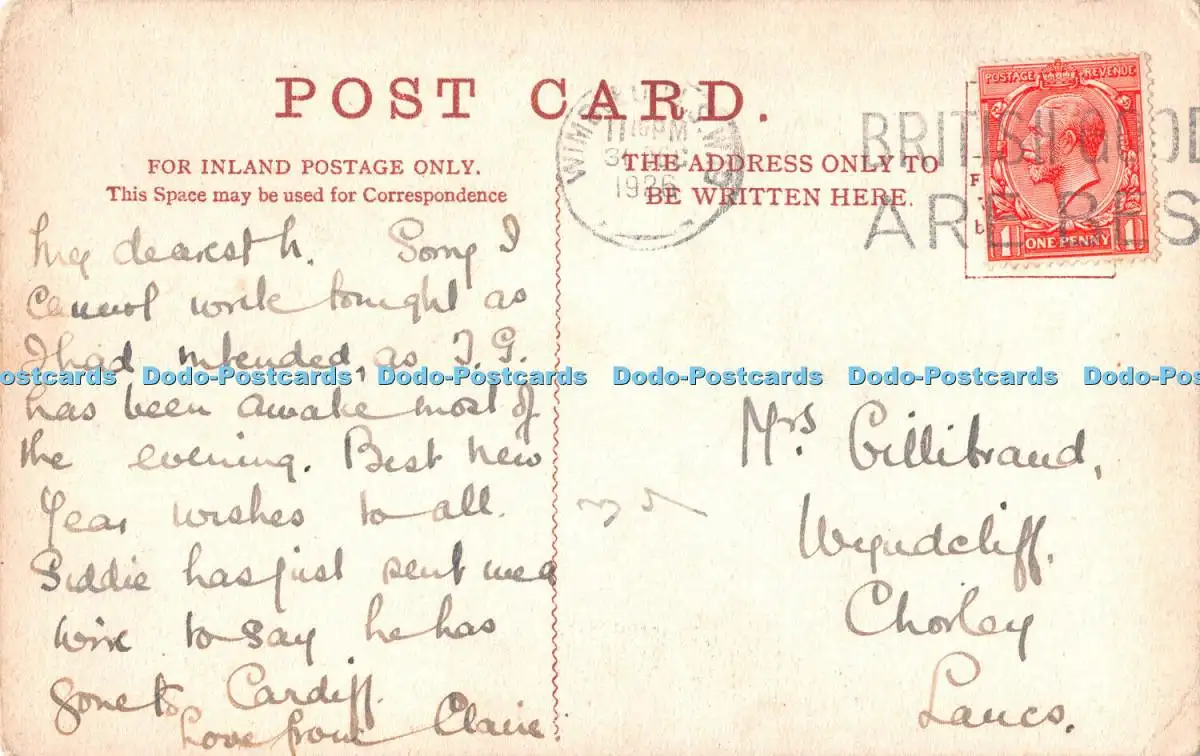 POST CARD.
FOR INLAND POSTAGE ONLY.
This Space may be used for Correspondence
THE ADDRESS ONLY TO
BE WRITTEN HERE.
POSTAGE REVENUE
1 ONE PENNY 1
11 15 PM
1926
BRITISH GOOD
ARE BES
My dearest M. Sorry I
cannot write tonight as
I had intended, as T. G.
has been awake most of
the evening. Best New
Year wishes to all.
Siddie has just sent me a
wire to say he has
gone to Cardiff.
Love from Claire.
Mrs Gillibrand,
Wyndcliff,
Chorley
Lancs.
ostcards Dodo-Postcards Dodo-Postcards Dodo-Postcards Dodo-Postcards Dodo-Postc